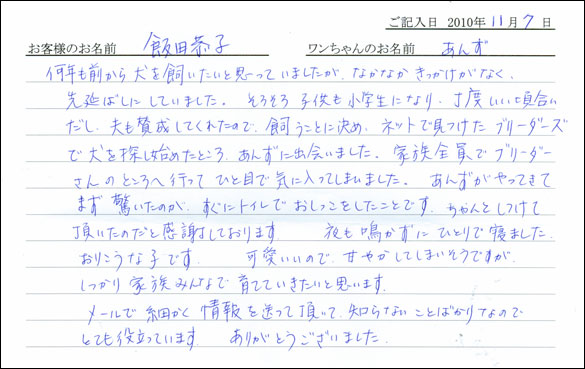 ご記入日 2010年 11月 7日
お客様のお名前 飯田恭子 ワンちゃんのお名前 あんず
何年も前から犬を飼いたいと思っていましたが、なかなかきっかけがなく、
先延ばしにしていました。そろそろ子供も小学生になり、丁度いい頃合い
だし、夫も賛成してくれたので、飼うことに決め、ネットで見つけたブリーダーズ
で犬を探し始めたところ、あんずに出会いました。家族全員でブリーダー
さんのところへ行ってひと目で気に入ってしまいました。あんずがやってきて
まず驚いたのが、すぐにトイレでおしっこをしたことです。ちゃんとしつけて
頂いたのだと感謝しております 夜も鳴かずにひとりで寝ました。
おりこうな子です。 可愛いいので、甘やかしてしまいそうですが、
しっかり家族みんなで育てていきたいと思います。
メールで細かく情報を送って頂いて、知らないことばかりなので
とても役立っています。 ありがとうございました。